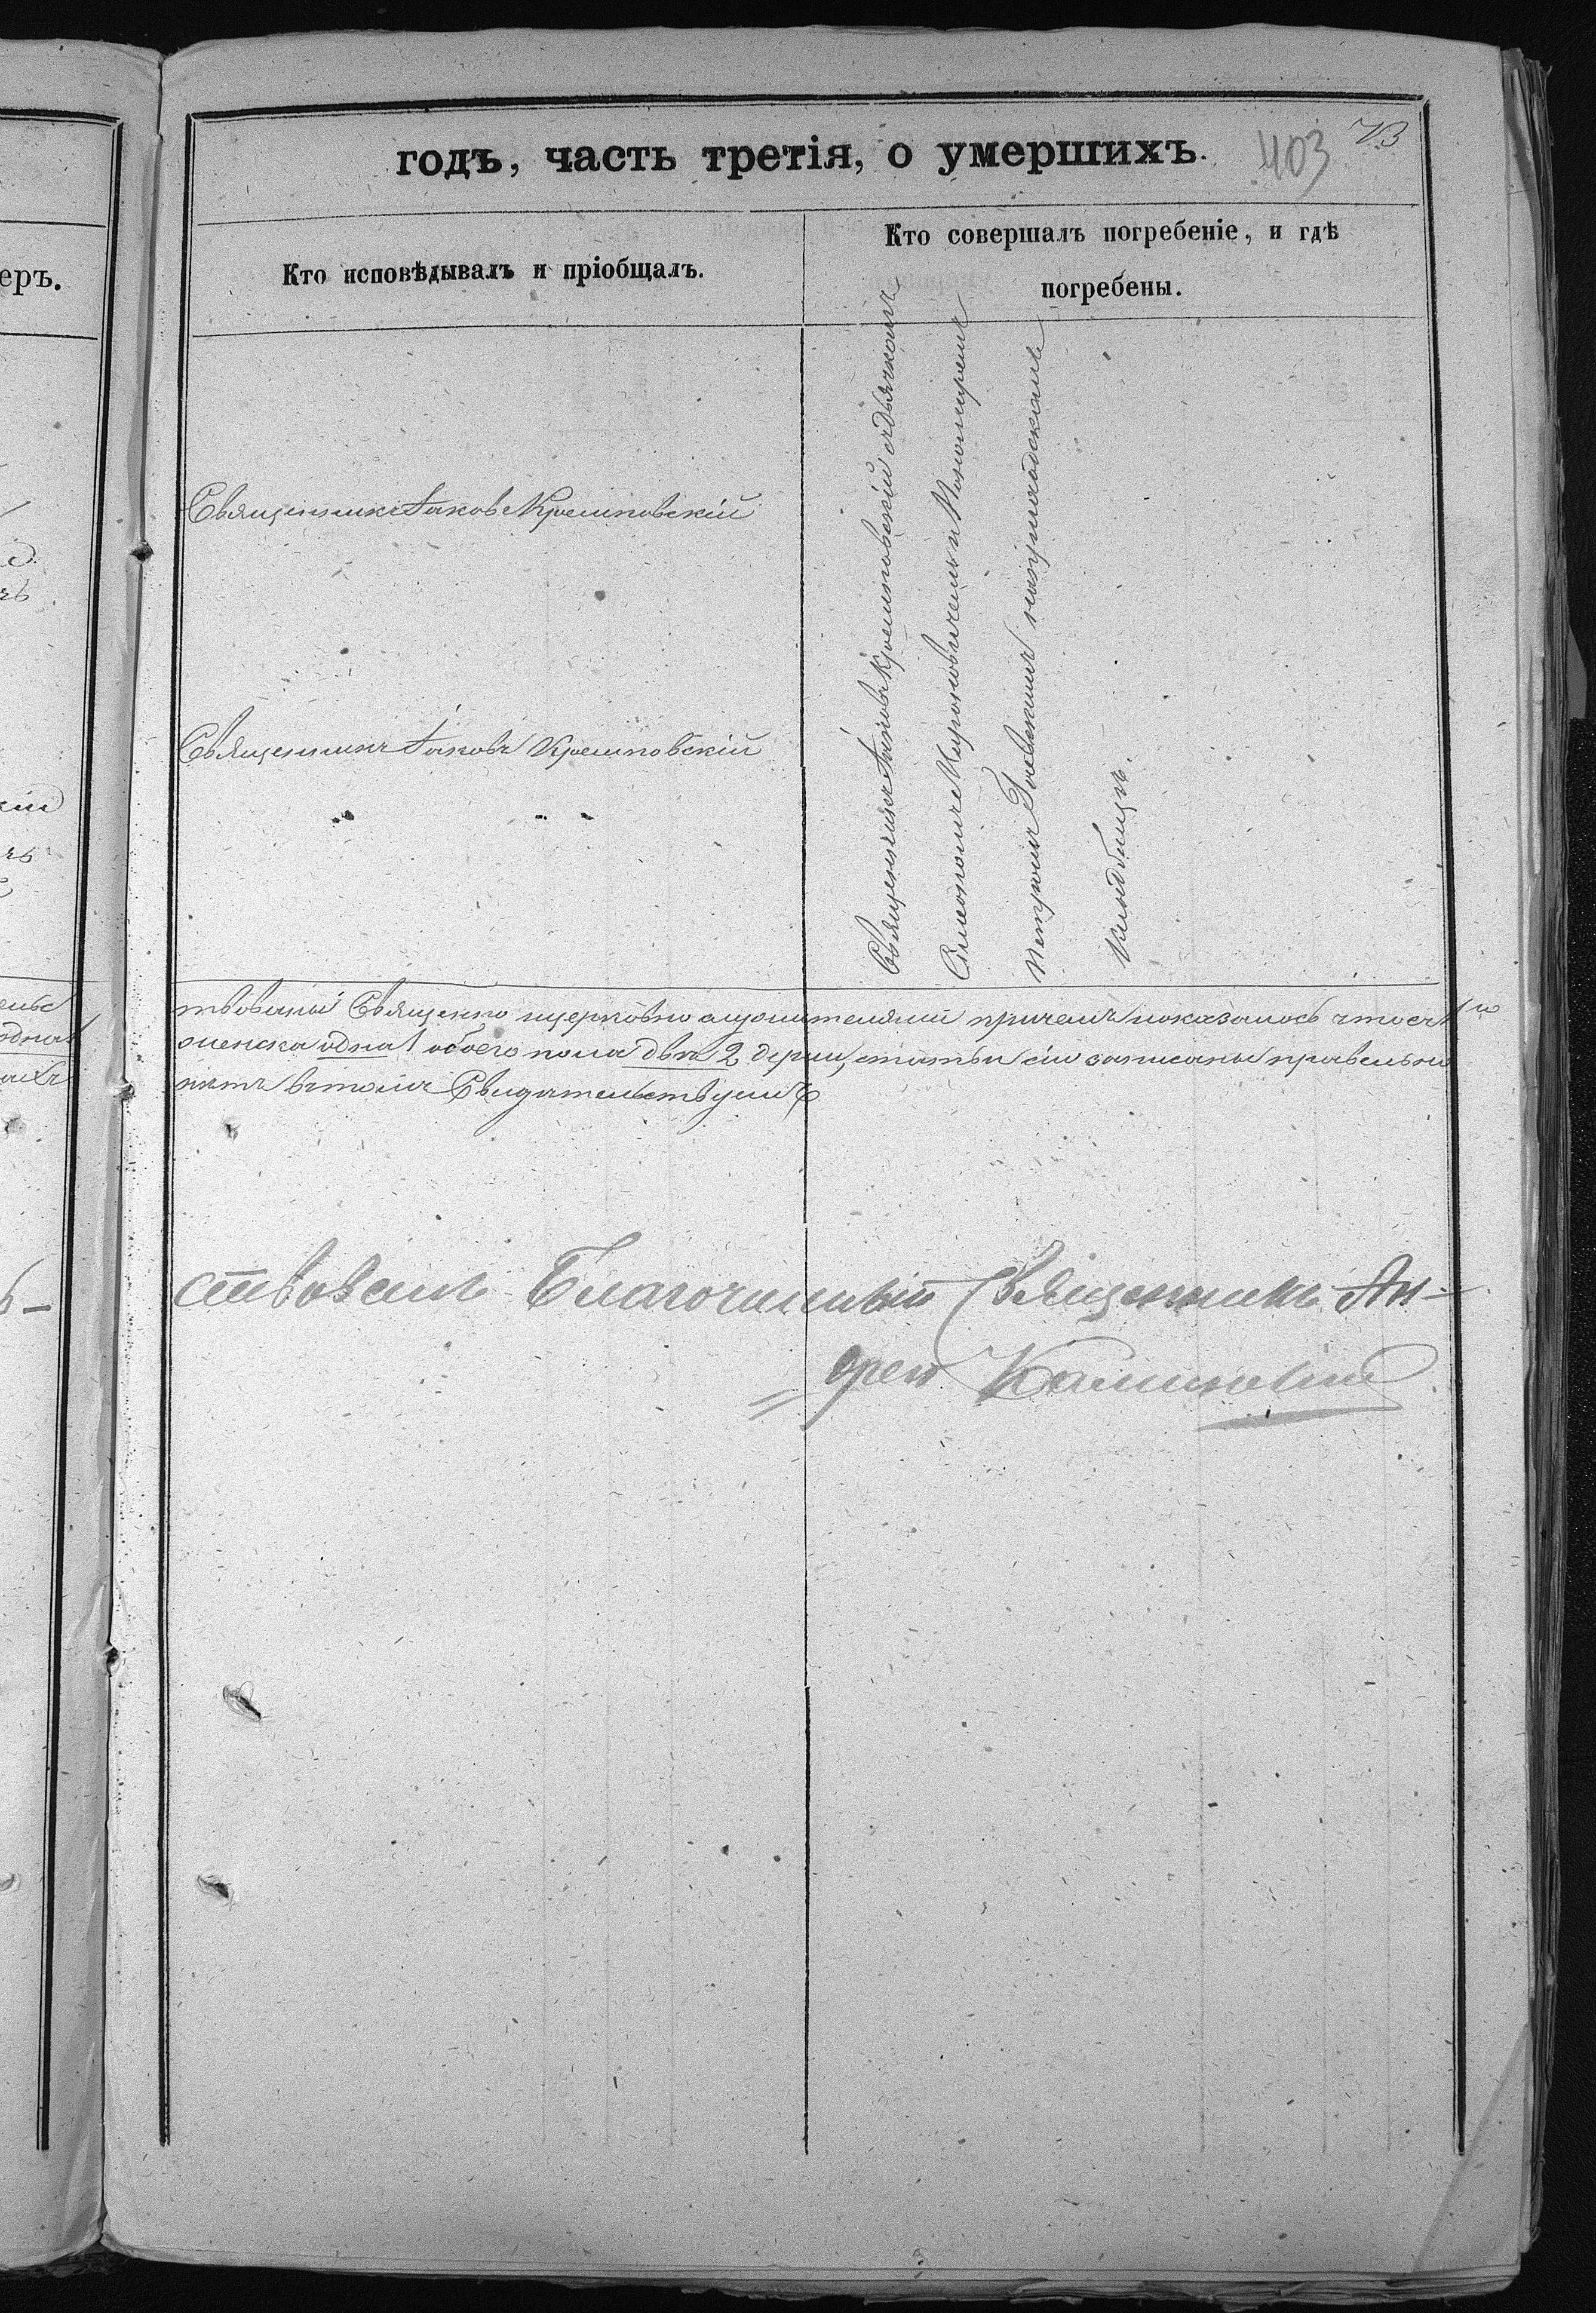 годъ, часть третія, о умершихъ.
403
73
еръ.
Кто исповѣдывалъ и пріобщалъ.
Кто совершалъ погребеніе, и гдѣ
погребены.
Священникъ Іаковъ Кремповскій
Священникъ Іаковъ Кремповскій
Священникъ Іаковъ Кремповскій съ дьячкомъ
Симеономъ Мироновичемъ и Пономаремъ
Петромъ на приходскомъ
кладбищѣ.
твованы Священно церковно служителями причемъ показалось что съ 1го
женска одна 1 обоего пола двѣ 2 статьи сіи записаны правельно
въ томъ Свидѣтельствуемъ
ствовалъ Благочинный Священникъ Ан-
дрей